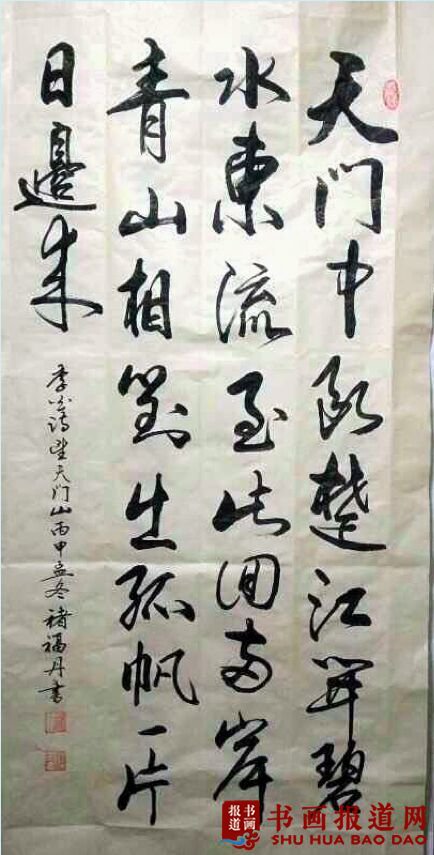 天门中断楚江開碧
水東流至此回两岸
青山相對出孤帆一片
日邊来
李白诗望天门山丙申孟冬褚福丹書
书画报道
书画报道网
SHU HUA BAO DAO